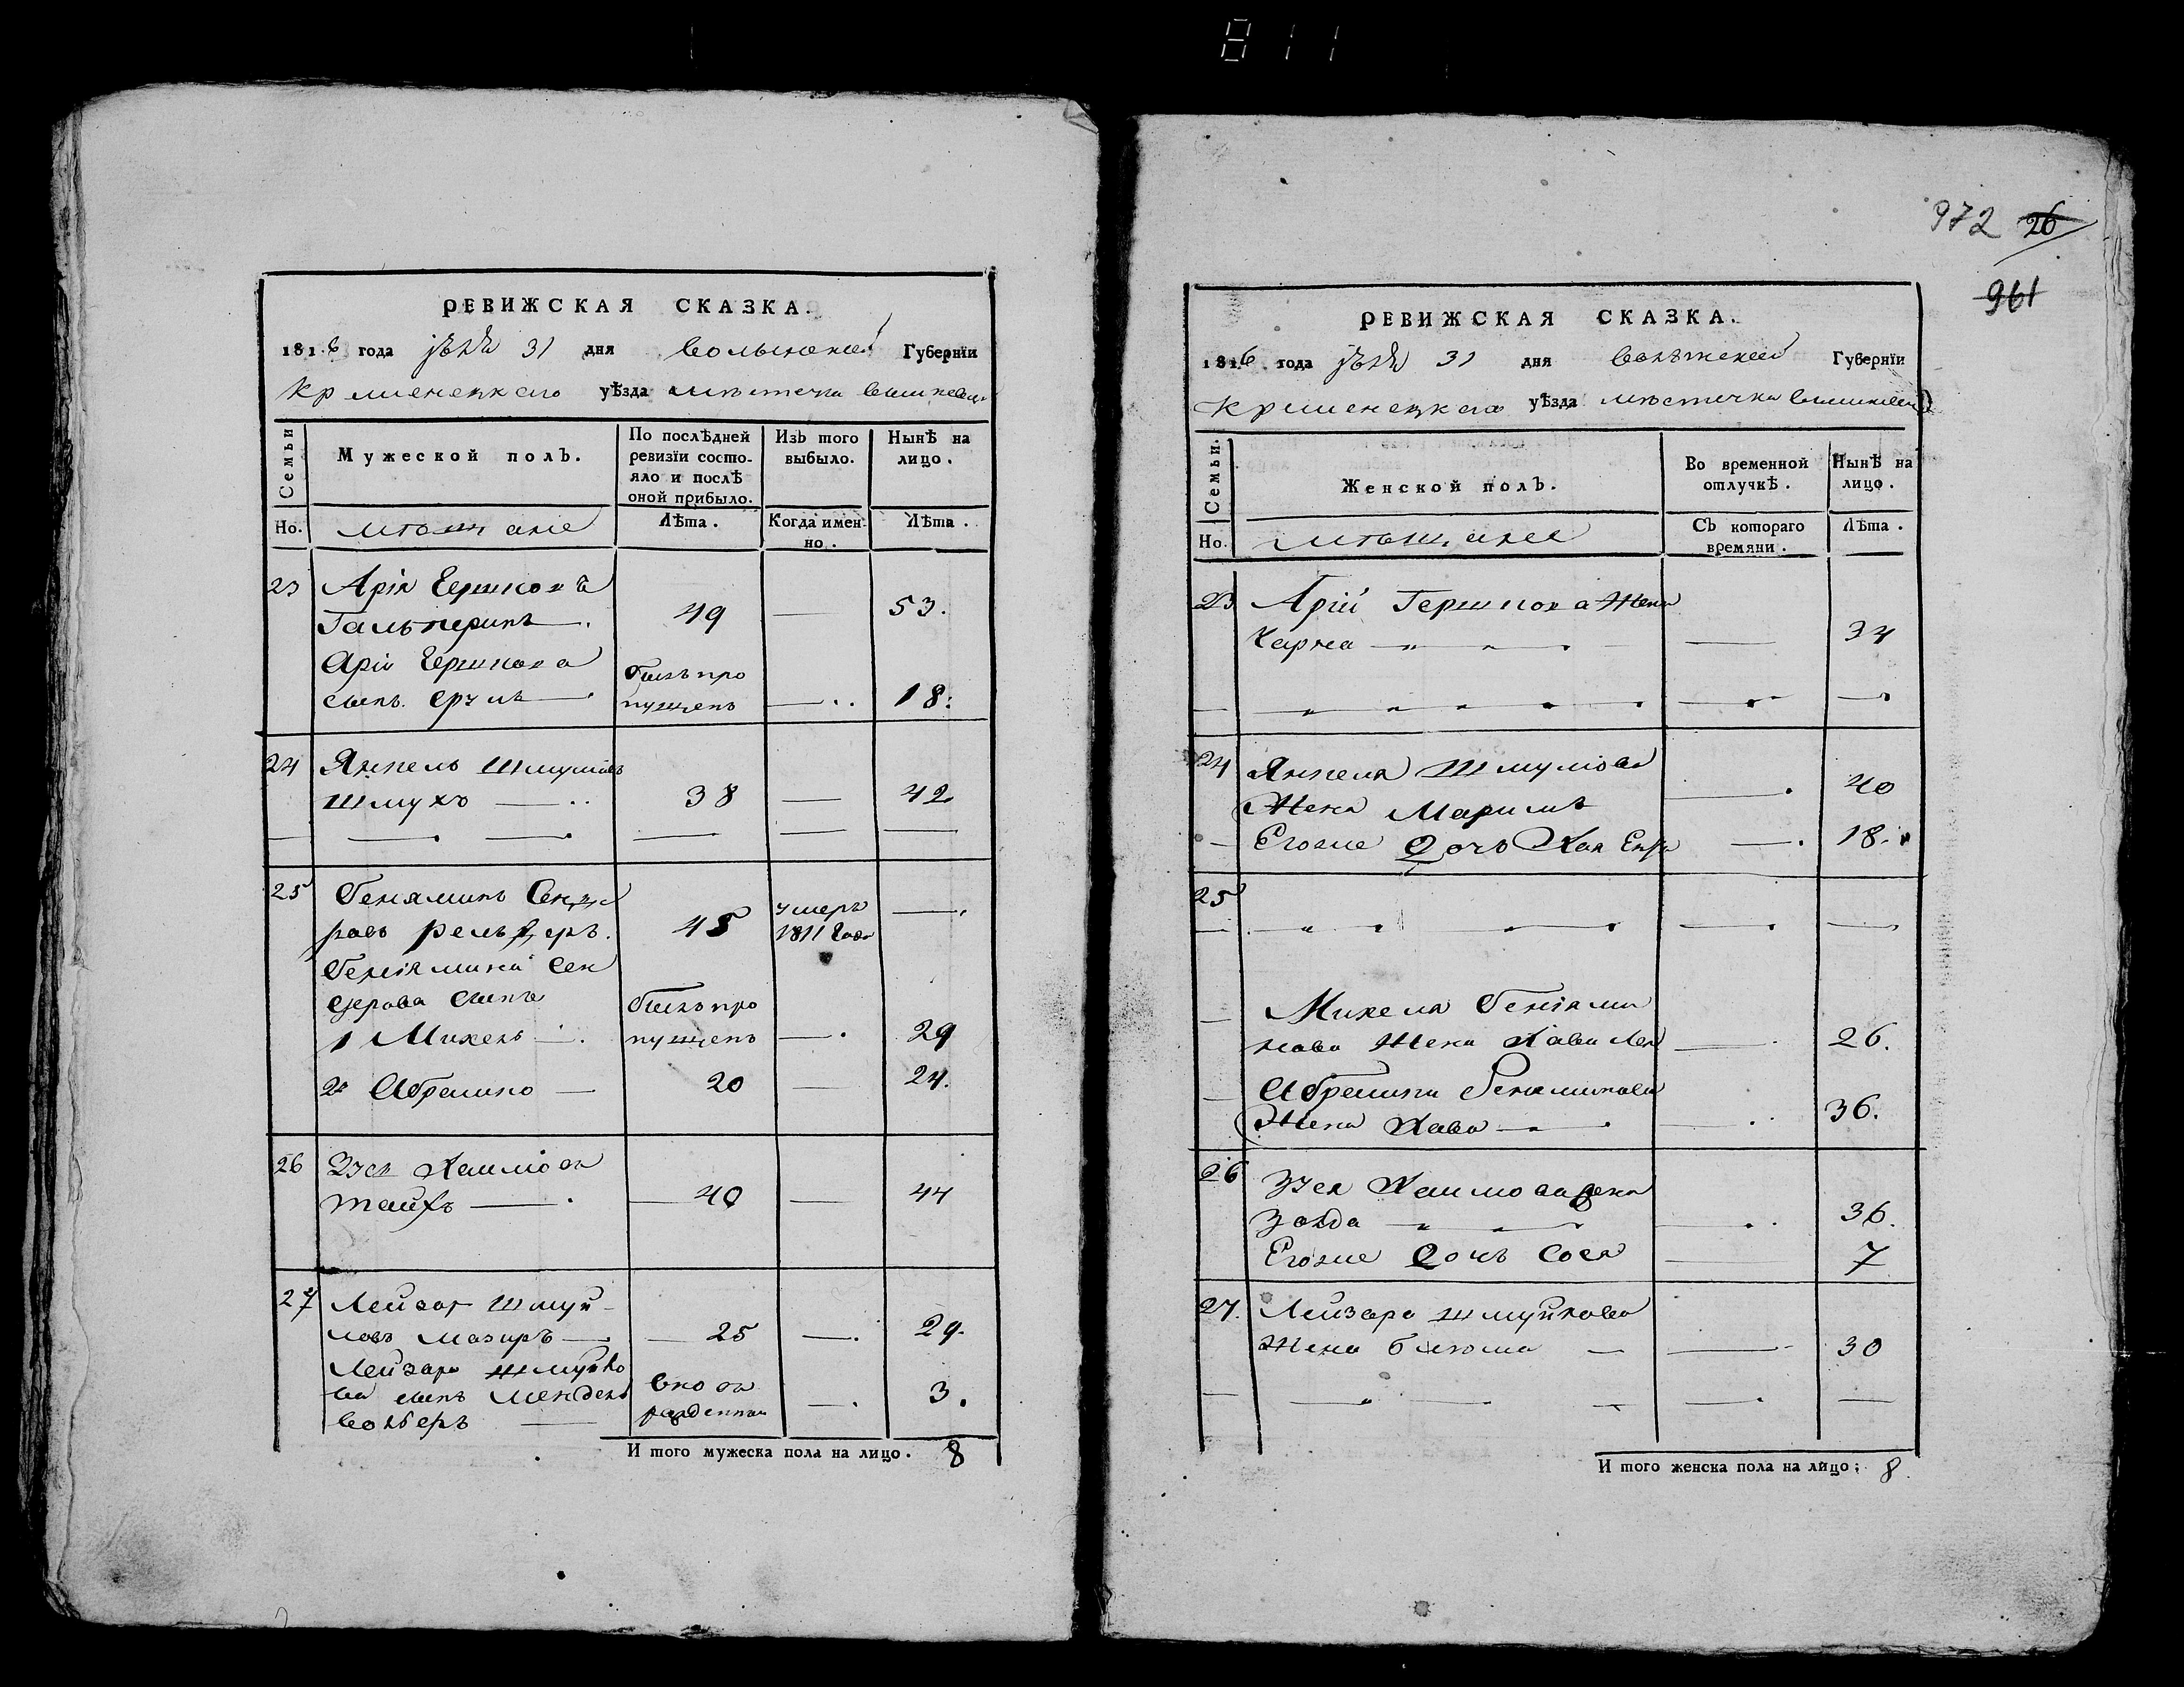 811
РЕВИЖСКАЯ СКАЗКА.
1816 года 31 дня Волынской Губернїи
Кременецкого уѣзда мѣстечка
Семьи
Мужеской полЪ.
По послѣдней ревизїи состо-
яло и послѣ оной прибыло.
ИзЪ того выбыло.
НынѢ на лицо.
Но.
мѣщане
Лѣта.
Когда имен-
но.
Лѣта.
23 Арія Гершковъ
Гальперинъ 49 — 53.
Арія Гершкова
сынъ Сруль былъ про
пущенъ — 18.
24 Янкель Шмулiовъ
Шмухъ — 38 — 42
25 Беняминъ Сенде
ровъ 45 умеръ
1811 года —
Бенiямина Сен
дерова сынъ
1 Михель был про
пущенъ — 29
2й Абрамко — 20 — 24.
26 Хаимiовъ
— 40 — 44
27 Лейзор Шмуй-
ловъ Мазуръ — 25 — 29.
Лейзора Шмуйло
ва сынъ Мендель
вновь
рожденный — 3.
И того мужеска пола на лицо. 8
972 26
961
РЕВИЖСКАЯ СКАЗКА.
1816 года 31 дня Волынской Губернїи
Кременецкого уѣзда мѣстечка
Семьи.
Женской полЪ.
Во временной отлучкѣ.
НынѢ на лицо.
Но.
мѣщане
СЪ котораго времяни.
Лѣта.
23 Арій Гершкова жена
— 34
24 Янкеля Шмулiова
Жена Маримъ — 40
Егоже дочь Хая — 18.
25
Михеля Бенiами
нова жена Хава — 26.
Абрамка Беняминова
Жена Хава — 36.
26 Хаимова жена
Золда — 36.
Егоже дочь Сося — 7
27. Лейзора Шмуйлова
Жена Блюма — 30
И того женска пола на лицо: 8.